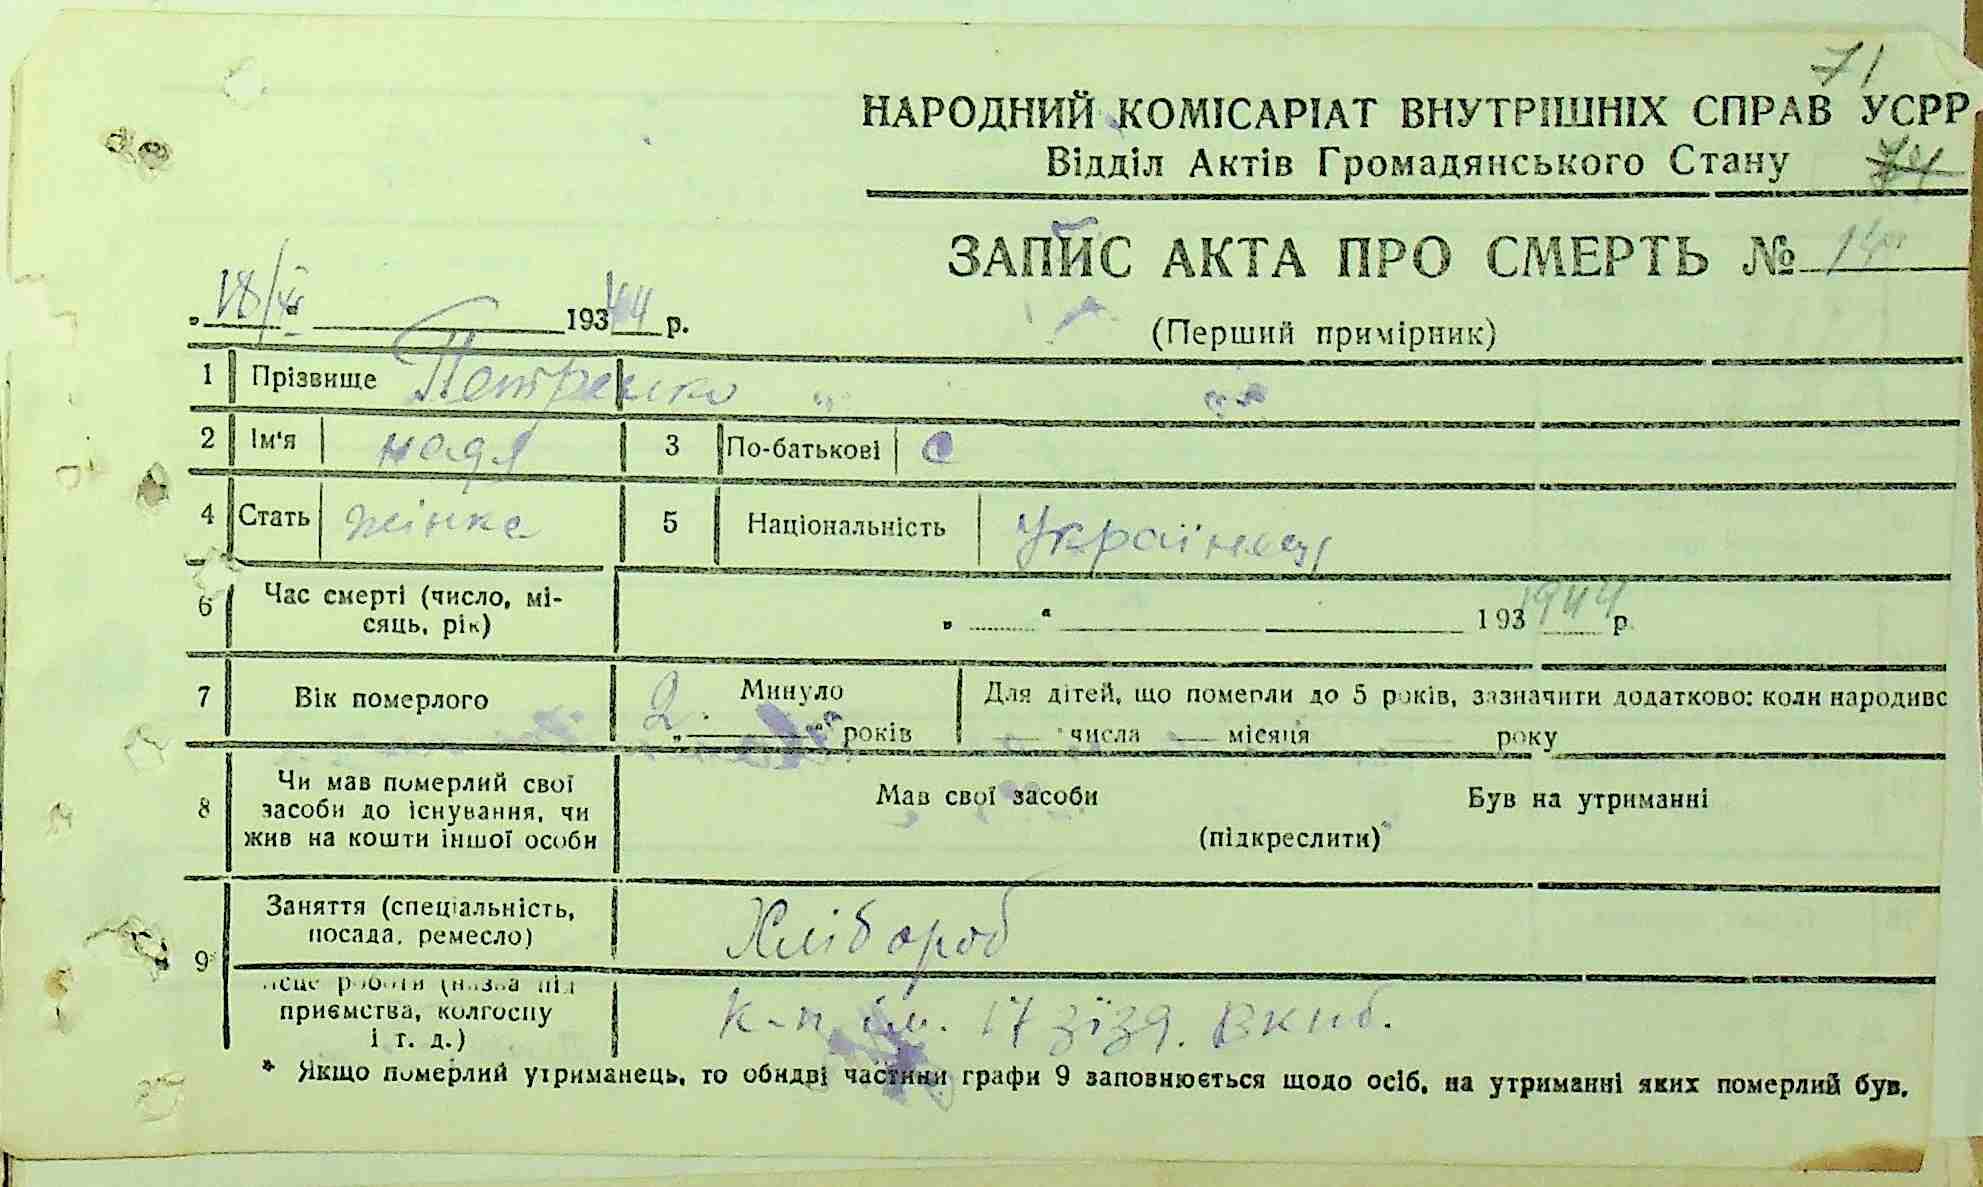 71
НАРОДНИЙ КОМІСАРІАТ ВНУТРІШНІХ СПРАВ УСРР
Відділ Актів Громадянського Стану
ЗАПИС АКТА ПРО СМЕРТЬ № 14
18/XI 193 44 р.
(Перший примірник)
1 Прізвище Петренко
2 Ім'я надя 3 По-батькові
4 Стать жінка 5 Національність Українка
6 Час смерті (число, мі-
сяць, рік) „ “ 193 1944 р.
7 Вік померлого 2 Минуло років Для дітей, що померли до 5 років, зазначити додатково: коли народивс
числа місяця року
8 Чи мав померлий свої
засоби до існування, чи
жив на кошти іншої особи
Мав свої засоби Був на утриманні
(підкреслити)*
9 Заняття (спеціальність,
посада, ремесло) Хлібороб
місце роботи (назва під
приємства, колгоспу
і т. д.) к-п ім. 17 зїзд. вкпб.
* Якщо померлий утриманець, то обидві частини графи 9 заповнюється щодо осіб, на утриманні яких померлий був.